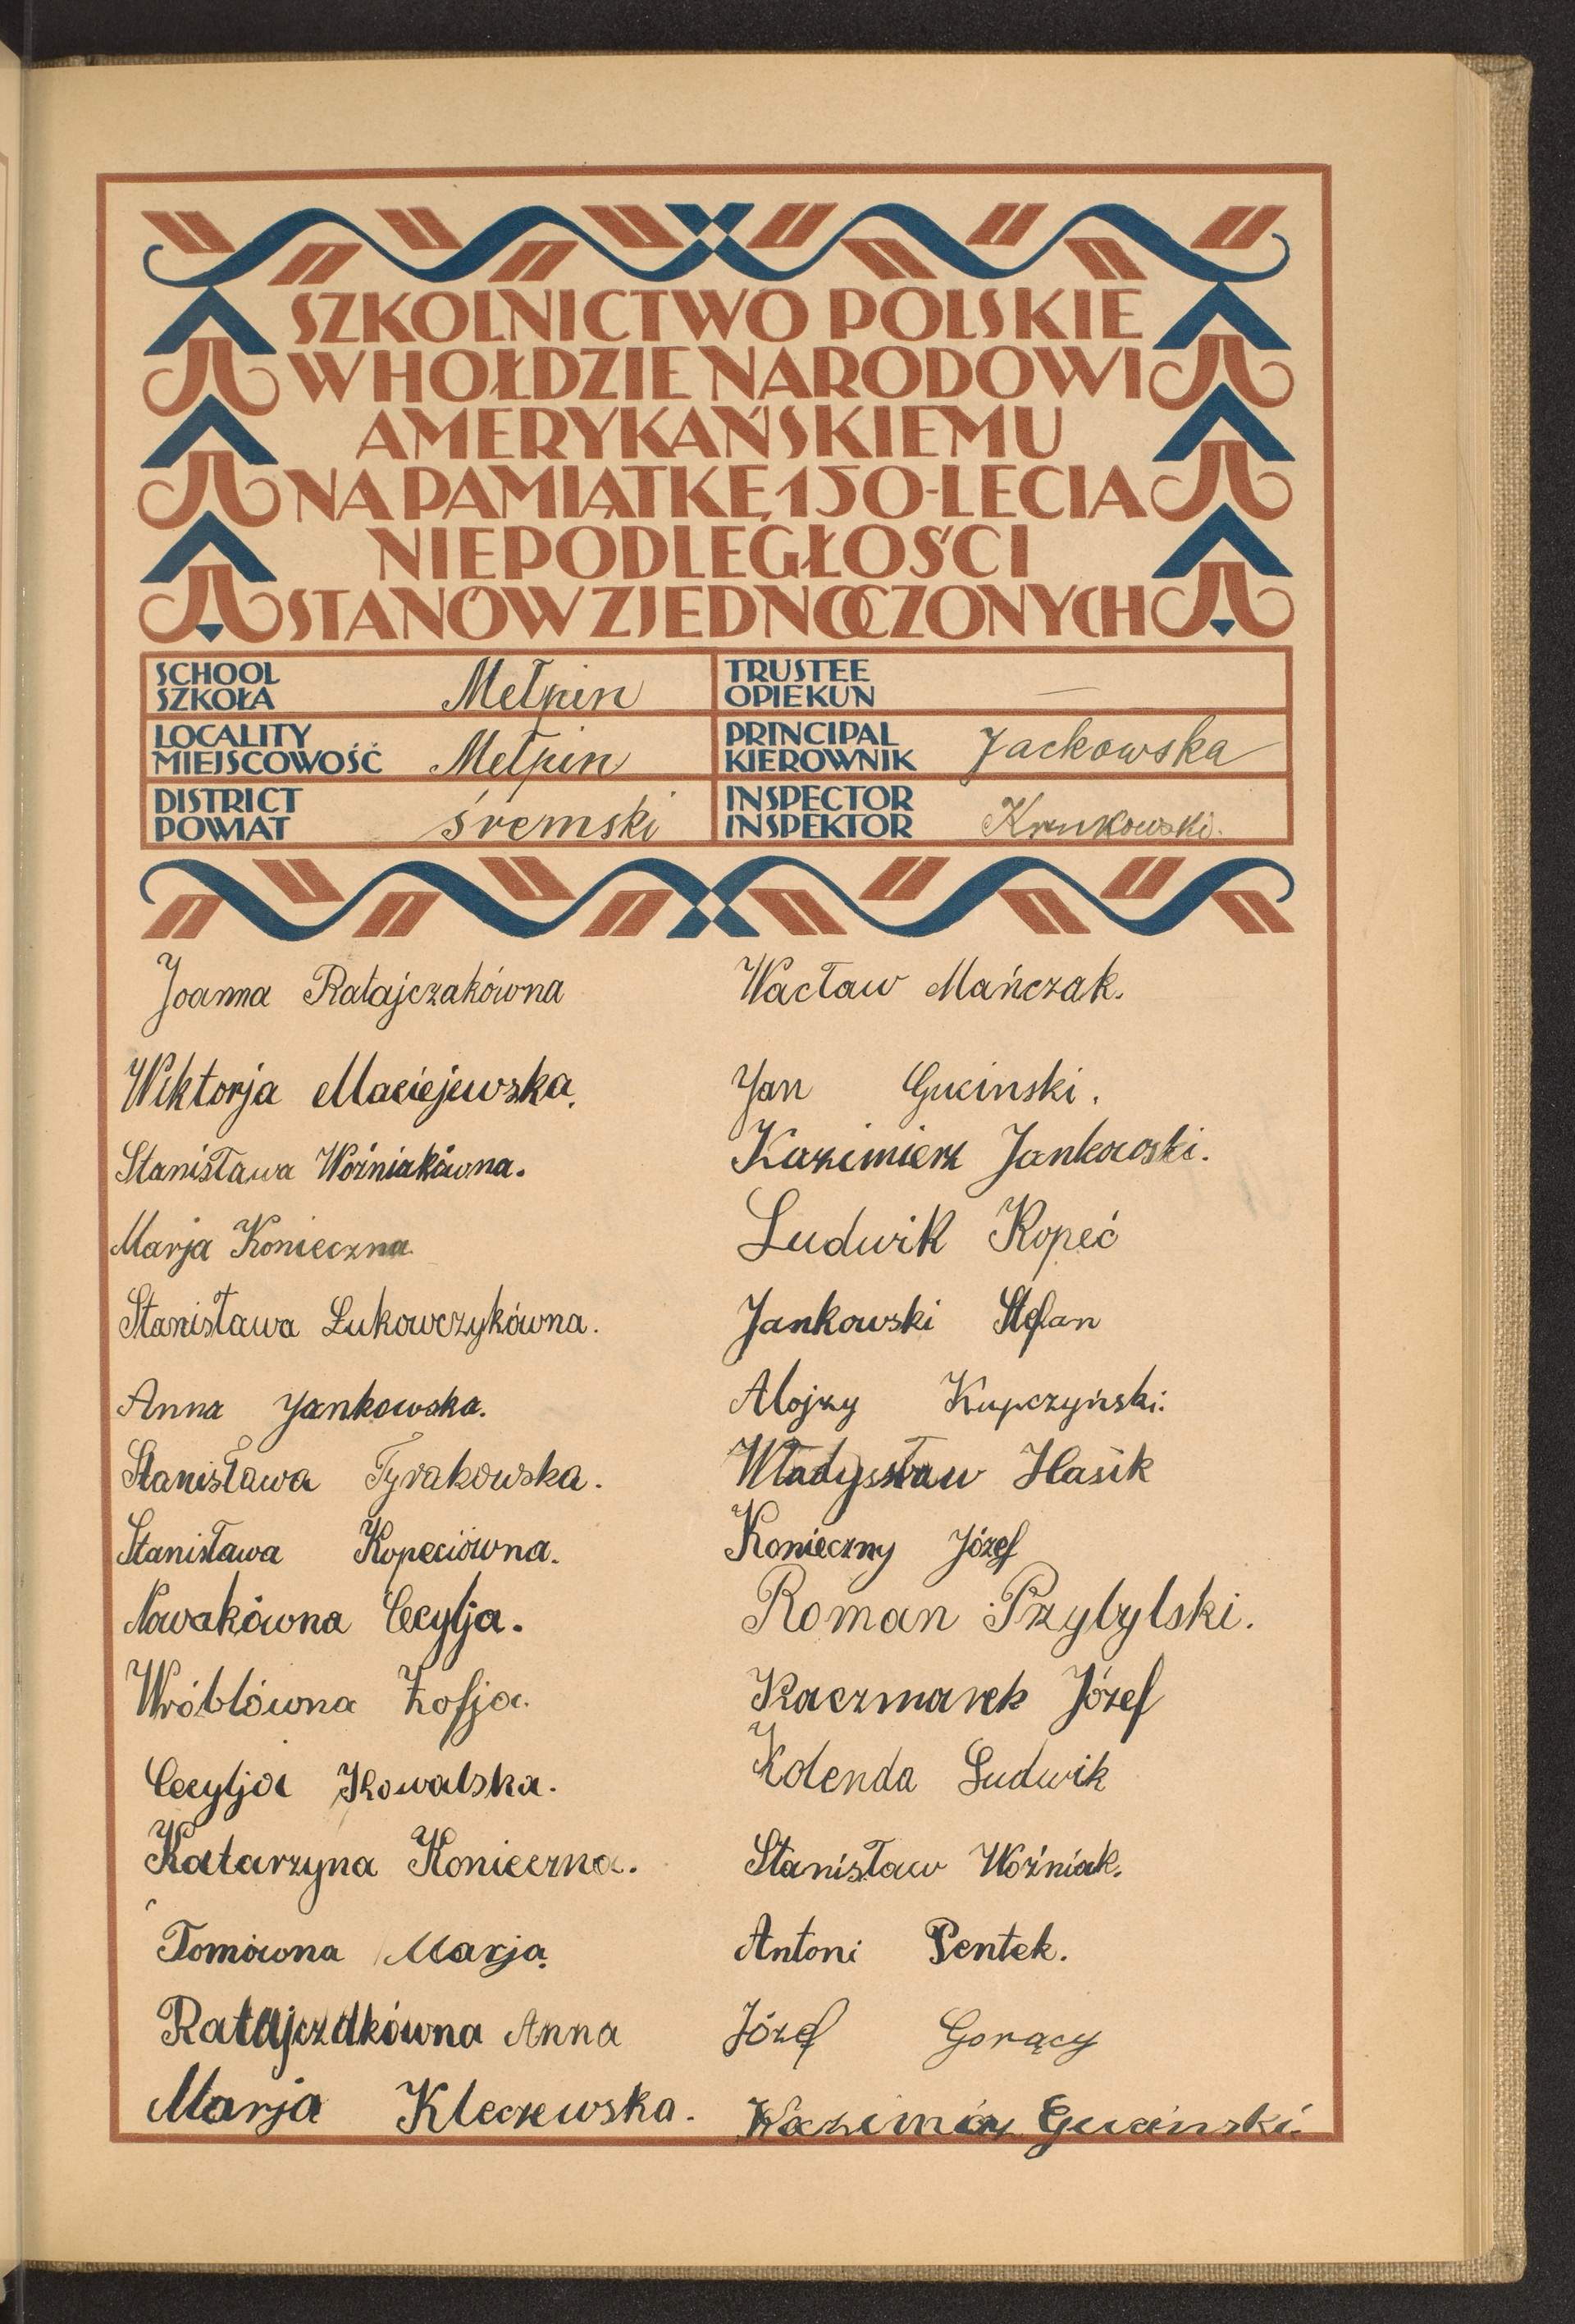 SZKOLNICTWO POLSKIE
W HOŁDZIE NARODOWI
AMERYKAŃSKIEMU
NA PAMIĄTKĘ 150-LECIA
NIEPODLEGŁOŚCI
STANÓW ZJEDNOCZONYCH
SCHOOL
SZKOŁA Mełpin
TRUSTEE
OPIEKUN —
LOCALITY
MIEJSCOWOŚĆ Mełpin
PRINCIPAL
KIEROWNIK Jackowska
DISTRICT
POWIAT śremski
INSPECTOR
INSPEKTOR
Joanna Ratajczakówna
Wiktorja Maciejewska.
Stanisława Woźniakówna.
Marja Konieczna
Stanisława Łukowczykówna.
Anna Jankowska.
Stanisława Tyrakowska.
Stanisława Kopeciówna.
Nowakówna Cecylja.
Wróblówna Zofja.
Cecylja Kowalska.
Katarzyna Konieczna.
Tomówna Marja.
Ratajczakówna Anna
Marja Kleczewska.
Wacław Mańczak.
Jan Gucinski.
Kazimierz Jankowski.
Ludwik Kopeć
Jankowski Stefan
Alojzy Kupczyński.
Władysław Hasik
Konieczny Józef
Roman Przybylski.
Kaczmarek Józef
Kolenda Ludwik
Stanisław Woźniak.
Antoni Pentek.
Józef Gorący
Kazimierz Guciński.